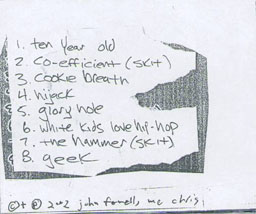 1. ten year old
2. co-efficient (skit)
3. cookie breath
4. hijack
5. glory hole
6. white kids love hip-hop
7. the hammer (skit)
8. geek
© + ℗ 2002 john fewells mc chris